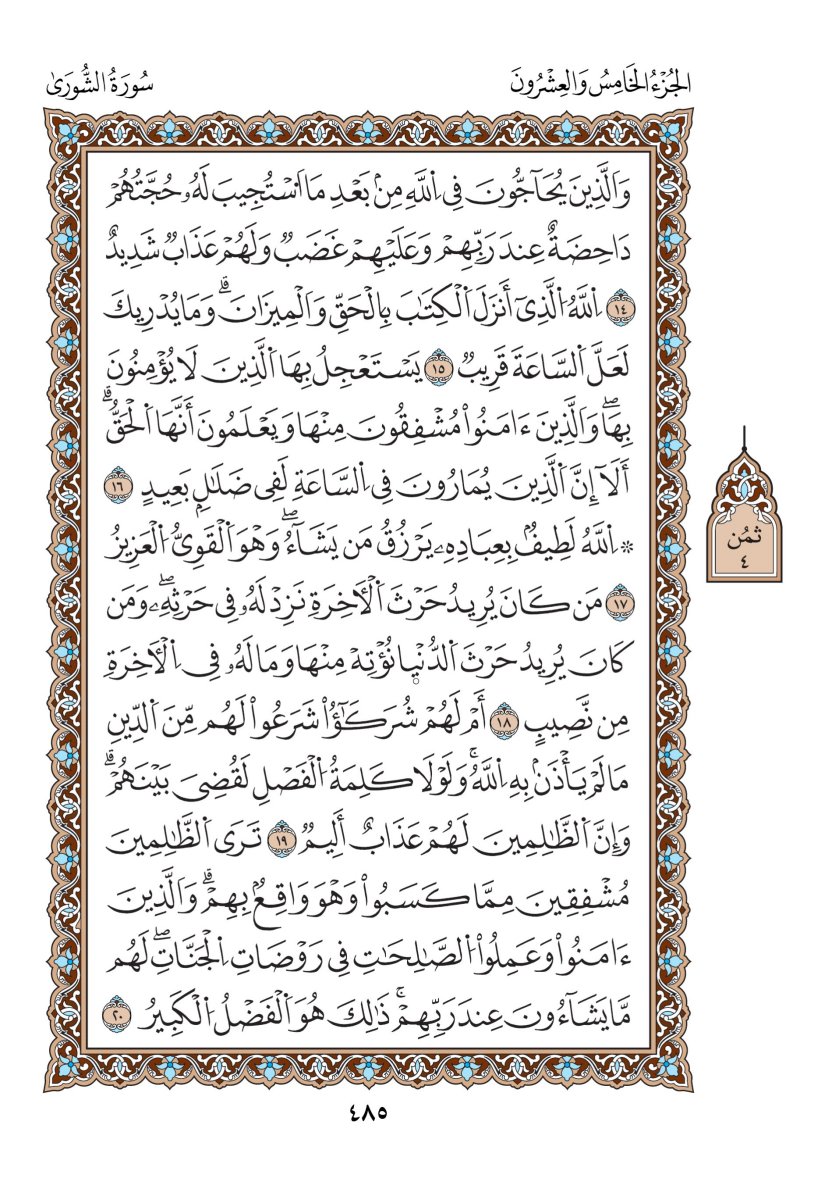 الجُزْءُ الخَامِسُ وَالعِشْرُونَ
سُورَةُ الشُّورَىٰ
وَالَّذِينَ يُحَآجُّونَ فِي اِ۬للَّهِ مِنۢ بَعْدِ مَا اَ۟سْتُجِيبَ لَهُۥ حُجَّتُهُمْ
دَاحِضَةٌ عِندَ رَبِّهِمْ وَعَلَيْهِمْ غَضَبٌ وَلَهُمْ عَذَابٌ شَدِيدٌ
١٤ اِ۬للَّهُ اُ۬لَّذِيٓ أَنزَلَ اَ۬لْكِتَٰبَ بِالْحَقِّ وَالْمِيزَانَۗ وَمَا يُدْرِيكَ
لَعَلَّ اَ۬لسَّاعَةَ قَرِيبٌ ١٥ يَسْتَعْجِلُ بِهَا اَ۬لَّذِينَ لَا يُؤْمِنُونَ
بِهَاۖ وَالَّذِينَ ءَامَنُواْ مُشْفِقُونَ مِنْهَا وَيَعْلَمُونَ أَنَّهَا اَ۬لْحَقُّۗ
أَلَآ إِنَّ اَ۬لَّذِينَ يُمَارُونَ فِي اِ۬لسَّاعَةِ لَفِي ضَلَٰلِۢ بَعِيدٍ ١٦
۞ اِ۬للَّهُ لَطِيفُۢ بِعِبَادِهِۦ يَرْزُقُ مَن يَشَآءُۖ وَهْوَ اَ۬لْقَوِيُّ اُ۬لْعَزِيزُ
١٧ مَن كَانَ يُرِيدُ حَرْثَ اَ۬لْأٓخِرَةِ نَزِدْ لَهُۥ فِي حَرْثِهِۦۖ وَمَن
كَانَ يُرِيدُ حَرْثَ اَ۬لدُّنْيَا نُؤْتِهْ مِنْهَا وَمَا لَهُۥ فِي اِ۬لْأٓخِرَةِ
مِن نَّصِيبٍ ١٨ أَمْ لَهُمْ شُرَكَٰٓؤُاْ شَرَعُواْ لَهُم مِّنَ اَ۬لدِّينِ
مَا لَمْ يَأْذَنۢ بِهِ اِ۬للَّهُۚ وَلَوْلَا كَلِمَةُ اُ۬لْفَصْلِ لَقُضِيَ بَيْنَهُمْۗ
وَإِنَّ اَ۬لظَّٰلِمِينَ لَهُمْ عَذَابٌ أَلِيمٌ ١٩ تَرَى اَ۬لظَّٰلِمِينَ
مُشْفِقِينَ مِمَّا كَسَبُواْ وَهْوَ وَاقِعُۢ بِهِمْۗ وَالَّذِينَ
ءَامَنُواْ وَعَمِلُواْ اُ۬لصَّٰلِحَٰتِ فِي رَوْضَاتِ اِ۬لْجَنَّاتِۖ لَهُم
مَّا يَشَآءُونَ عِندَ رَبِّهِمْۚ ذَٰلِكَ هُوَ اَ۬لْفَضْلُ اُ۬لْكَبِيرُ ٢٠
ثُمُن
٤
٤٨٥